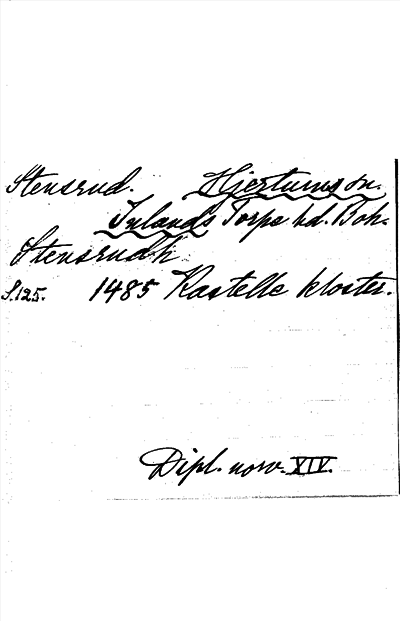 Stensrud. Hjertums sn.
Inlands Torpe hd. Boh.
Stensrudh
S. 125. 1485 Kastelle kloster.
Dipl. norv. XIV.